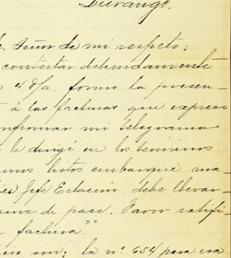 Durango.
Señor de mi respeto:
contestar debidamente
forma la presen-
á las facturas que expreso
onfirmar mi telegrama
le dirigí en los terminos
mos listos embarque ma-
Jefe Estación debe llevar-
de pase. Favor ratifi-
factura""
son: la nº 654 para